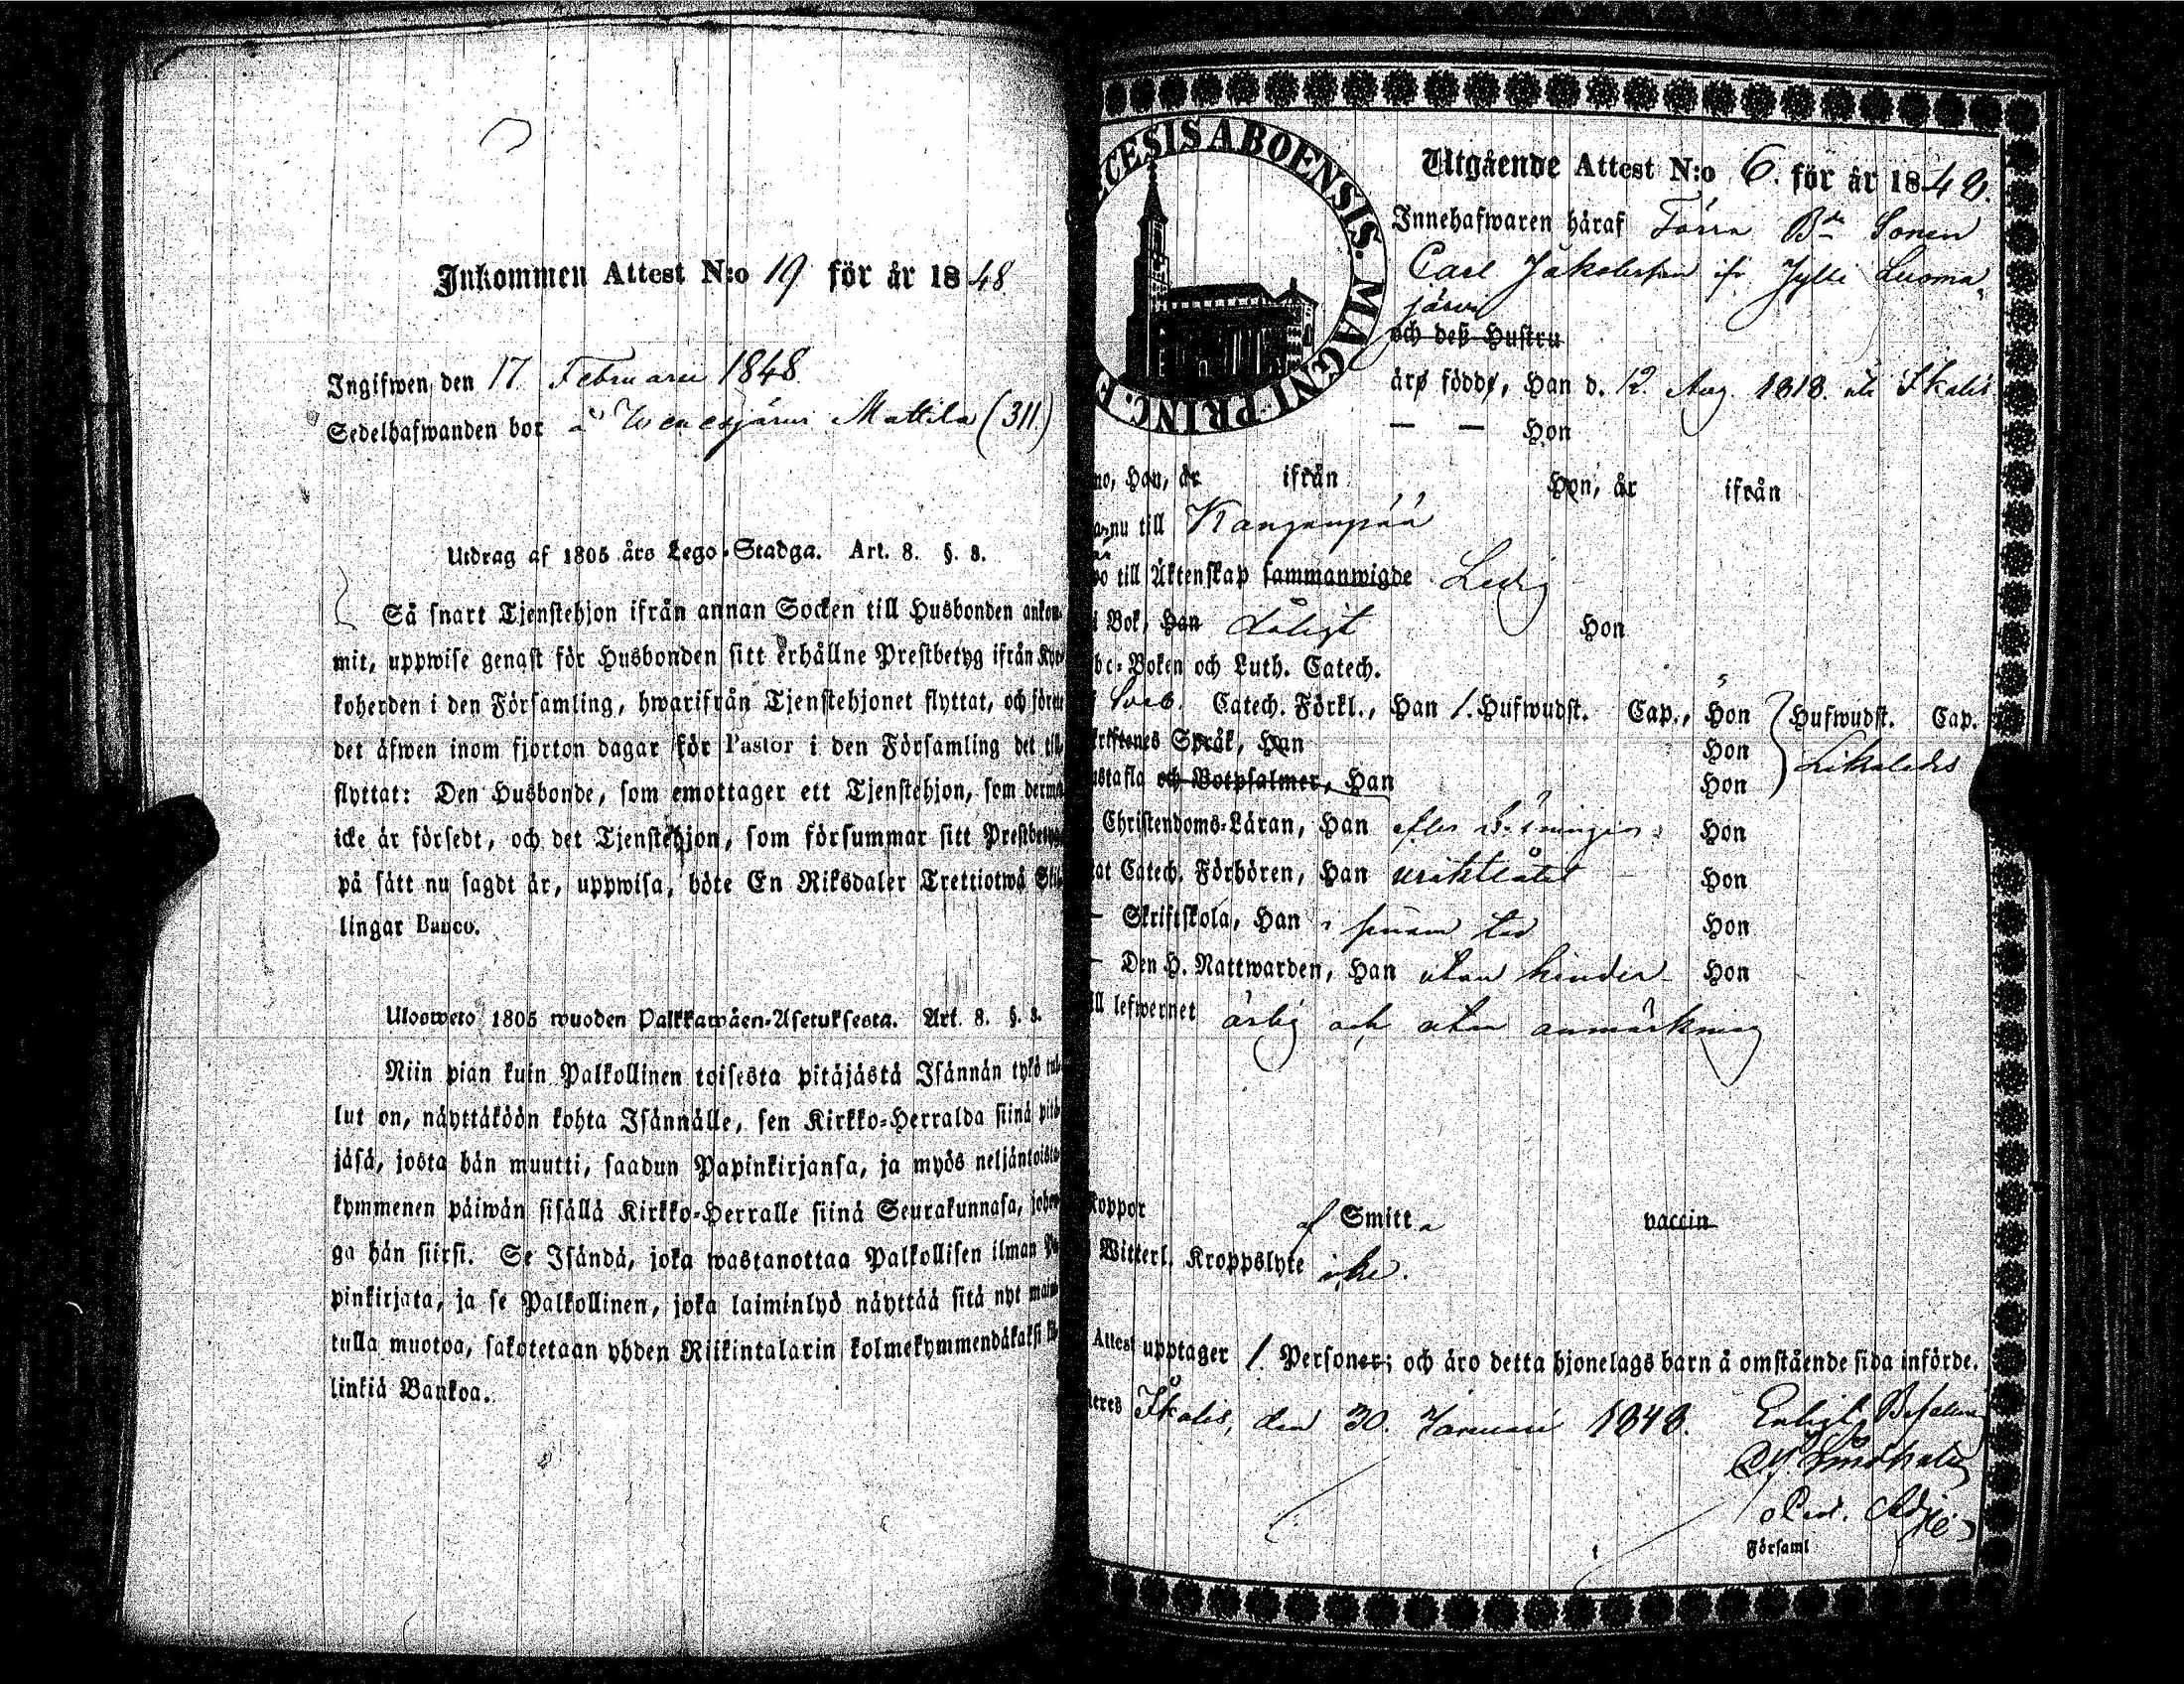 Inkommen Attest N:o 19 för år 1848
Ingifwen den 17 Februarii 1848.
Sedelhafwanden bor å Wenesjärwi Mattila (311.)
Utdrag af 1805 års Lego-Stadga. Art. 8. §. 8.
Så snart Tjenstehjon ifrån annan Socken till Husbonden ankom-
mit, uppwise genast för Husbonden sitt erhållne Prestbetyg ifrån Kyr-
koherden i den Församling, hwarifrån Tjenstehjonet flyttat, och förete
det äfwen inom fjorton dagar för Pastor i den Församling det till-
flyttat: Den Husbonde, som emottager ett Tjenstehjon, som dermed
icke är försedt, och det Tjenstehjon, som försummar sitt Prestbetyg
på sätt nu sagdt är, uppwisa, böte En Riksdaler Trettiotwå Skil-
lingar Banco.
Ulosweto 1805 wuoden Palkkawäen-Asetuksesta. Art. 8. §. 8.
Niin pian kuin Palkollinen toisesta pitäjästä Isännän tykö tul-
lut on, näyttäköön kohta Isännälle, sen Kirkko-Herralda siinä pitä-
jäsä, josta hän muutti, saadun Papinkirjansa, ja myös neljäntoista-
kymmenen päiwän sisällä Kirkko-Herralle siinä Seurakunnasa, johon-
ga hän siirsi. Se Isändä, joka wastanottaa Palkollisen ilman Pa-
pinkirjata, ja se Palkollinen, joka laiminlyö näyttää sitä nyt mainit-
tulla muotoa, sakotetaan yhden Riikintalarin kolmekymmendäkaksi kil-
linkiä Bankoa.
CESIS ABOENSIS. MAGNI PRINC. F
Utgående Attest N:o 6. för år 1848.
Innehafwaren häraf Förra Bde Sonen
Carl Jakobsson ifr. Jylli Luoma-
järwi
och deß Hustru
äro födde, Han d. 12. Aug. 1818. uti Ikalis
— — Hon
no, Han, år ifrån Hon, år ifrån
nu till Kangenpää
till Äktenskap sammanwigde Ledig
i Bok, Han dåligt Hon
bc-Boken och Luth. Catech.
Sveb. Catech. Förkl., Han 1. Hufwudst. Cap., Hon Hufwudst. Cap.
kriftenes Språk, Han Hon Likaledes
ustafla och Botpsalmer, Han Hon
Christendoms-Läran, Han efter Hon
at Catech. Förhören, Han Hon
— Skriftskola, Han i sinom tid Hon
— Den H. Nattwarden, Han utan hinder Hon
ll lefwernet ärlig och utan anmärkning
Koppor af Smitta vaccin
Witterl. Kroppslyte icke.
Attest upptager 1. Personer; och äro detta hjonelags barn å omstående sida införde.
Ikalis, den 30. Januari 1848. Enligt Befallning
Församl